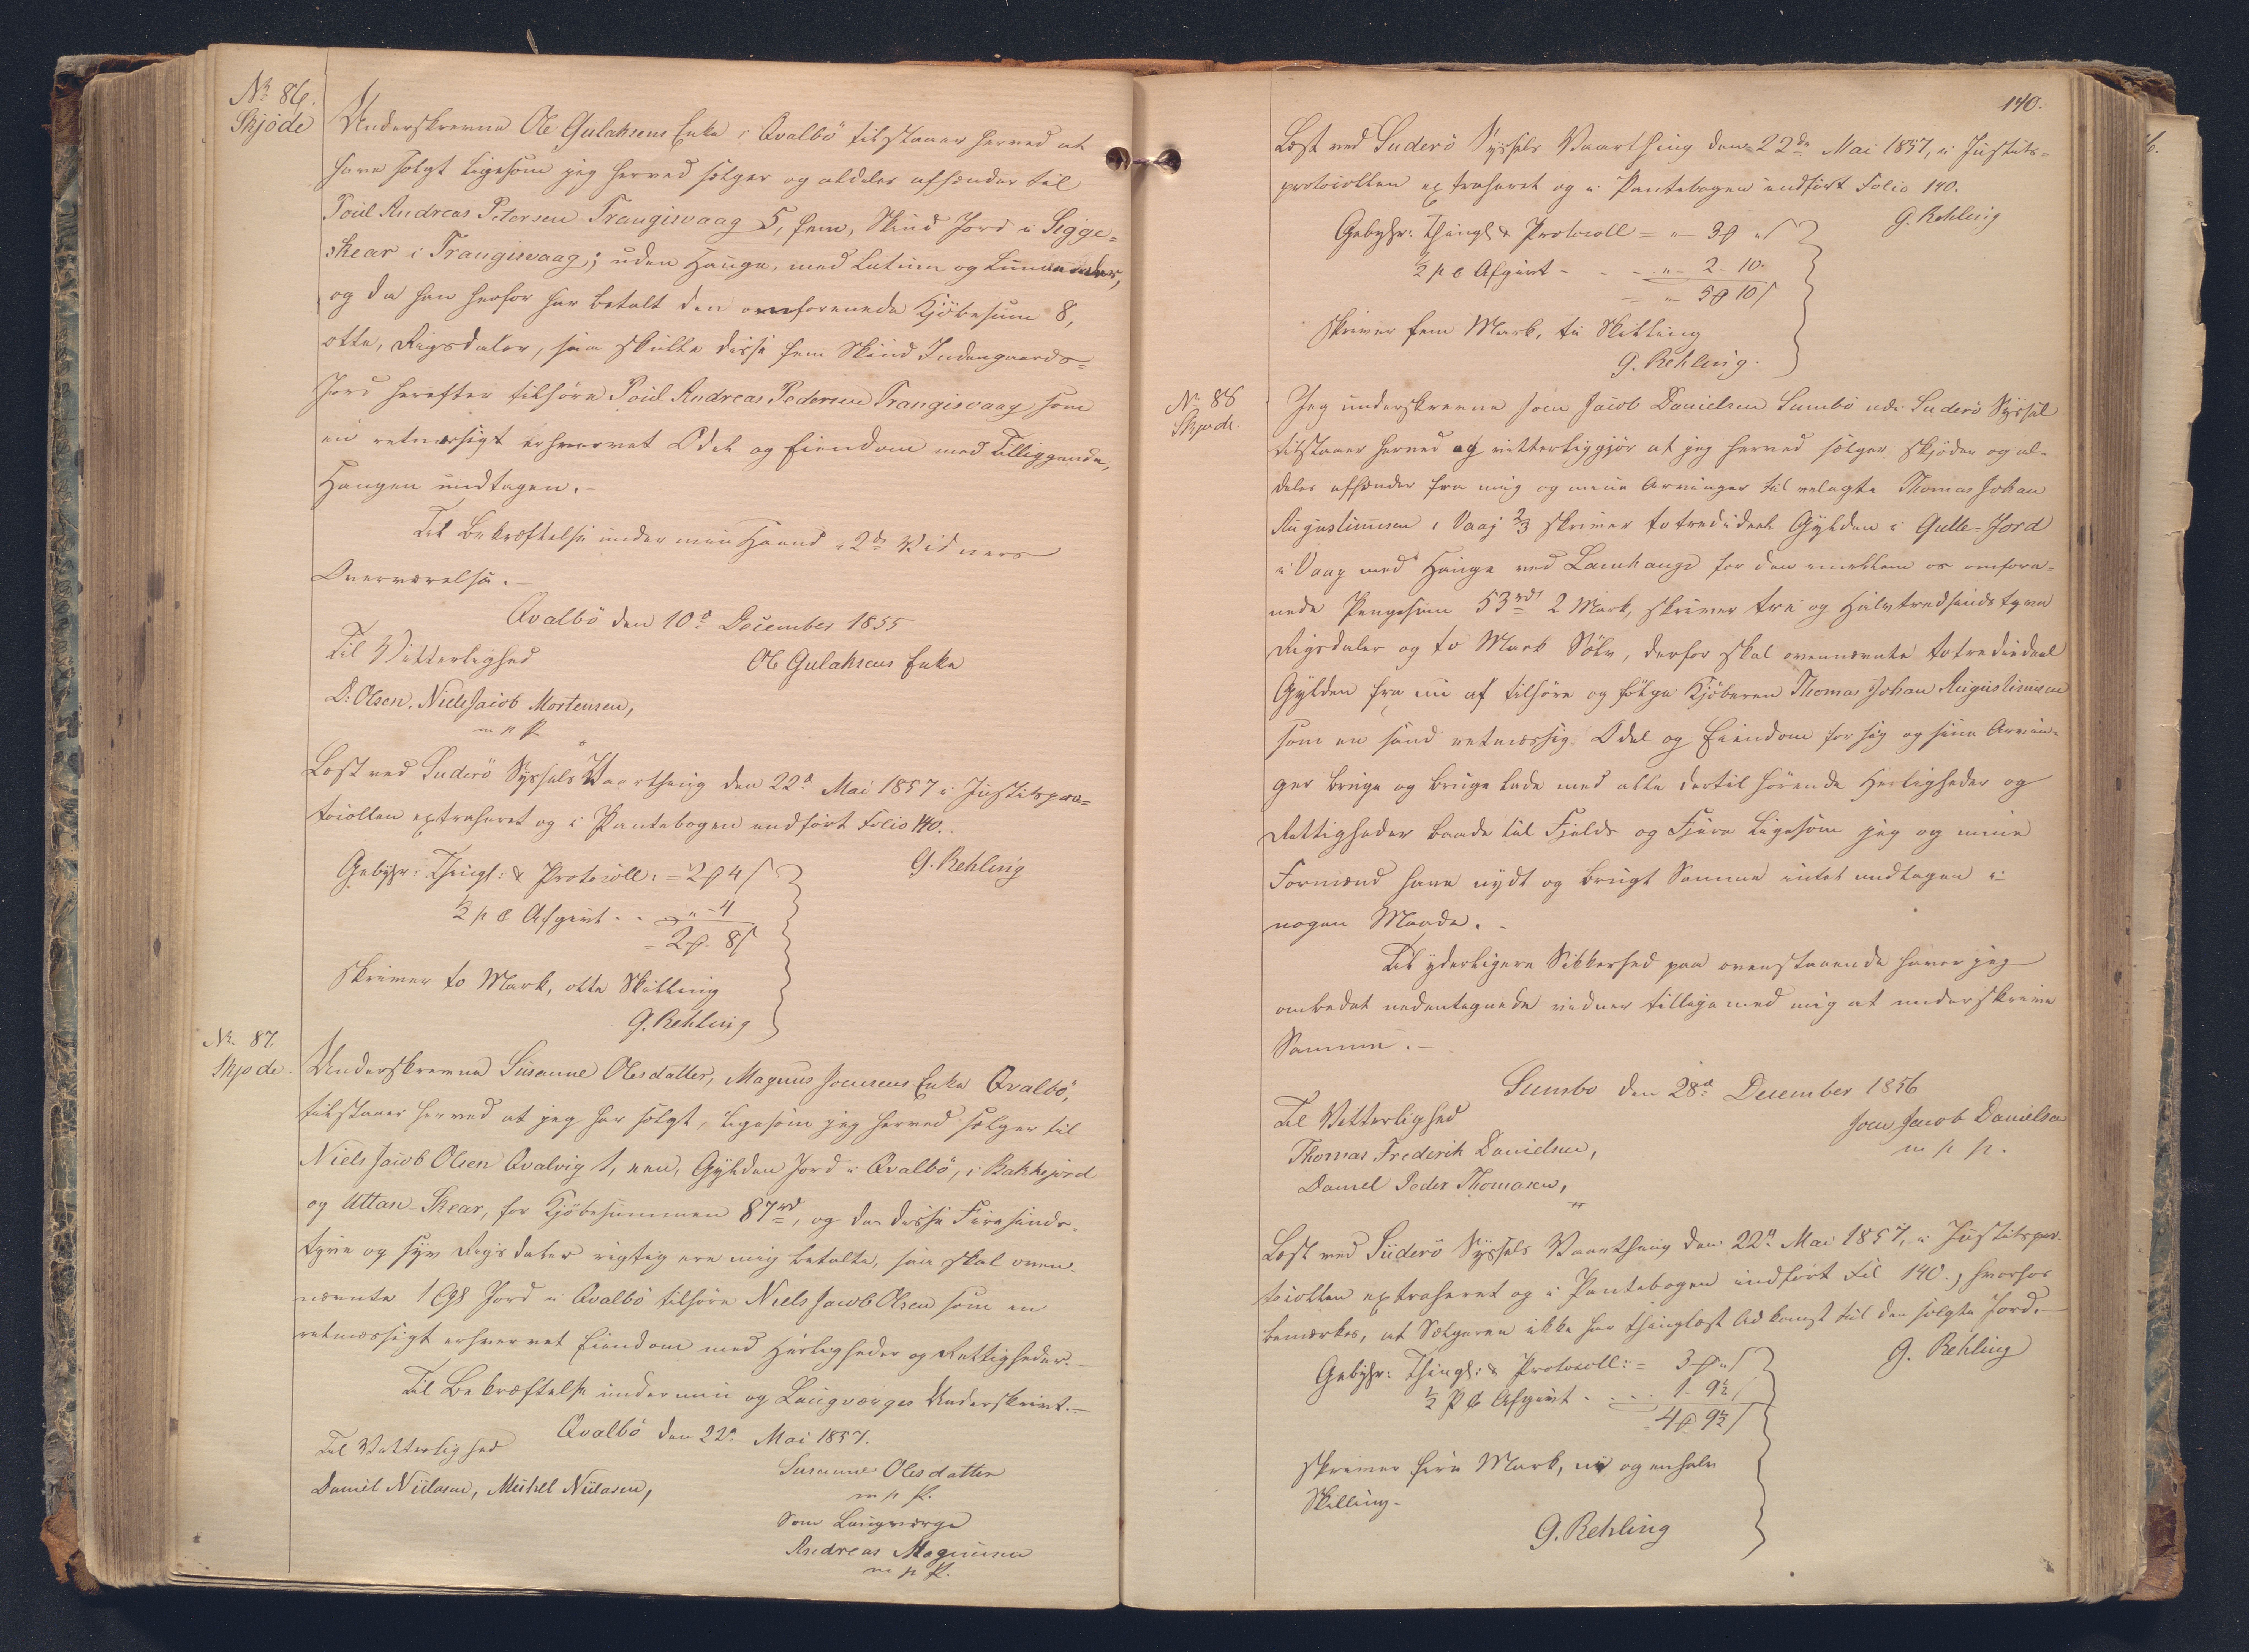 No 86.
Skjöde
Underskrevne Ole Gulaksens Enke i Qvalbö tilstaaer herved at
have solgt ligesom jeg herved sælger og aldeles afhænder til
Poül Andreas Petersen Trangisvaag 5, fem, Skind Jord i Sigge-
skear i Trangisvaag; uden Hauge, med Lutum og Lunnendum,
og da han herfor har betalt den omforenede Kjöbesum 8,
otte, Rigsdaler, saa skulle disse fem Skind Indengaards-
Jord herefter tilhöre Poül Andreas Pedersen Trangisvaag som
en retmæsigt erhvervet Odel og Eiendom med Tilliggende,
Haugen undtagen.-
Til Bekræftelse under min Haand i 2de Vidners
Overværelse.-
Qvalbö den 10de December 1855
Til Vitterlighed
Ole Gulaksens Enke
D: Olsen, Niels Jacob Mortensen,
m p p.
Læst ved Suderö Syssels Vaarthing den 22de Mai 1857 i Justitspro-
tocollen extraheret og i Pantebogen indfört Folio 140.
G. Rehling
Gebyhr: Thingl: & Protocoll: = 2 ℳ 4 ß
½ p C Afgivt - - " - 4
= 2 ℳ 8 ß
skriver to Mark, otte Skilling
G. Rehling
No. 87.
Skjöde.
Underskrevne Susanne Olesdatter, Magnus Joensens Enke Qvalbö,
tilstaaer herved at jeg har solgt, ligesom jeg herved sælger til
Niels Jacob Olsen Qvalvig 1, een, Gylden Jord i Qvalbö, i Bakkejord
og Uttan-Skear, for Kjöbesummen 87 rd, og da disse Firesinds-
tyve og syv Rigsdaler rigtig ere mig betalte, saa skal oven-
nævnte 1 Gl Jord i Qvalbö tilhöre Niels Jacob Olsen som en
retmæssigt erhvervet Eiendom med Herligheder og Rettigheder.-
Til Bekræftelse under min og Laugværges Underskrivt.-
Qvalbö den 22de Mai 1857.
Til Vitterlighed
Susanne Olesdatter
Daniel Nielasen, Michel Nielasen,
m p p.
Som Laugværge
Andreas Magnusen
m p p.
140.
Læst ved Suderö Syssels Vaarthing den 22de Mai 1857, i Justits-
protocollen extraheret og i Pantebogen indfört Folio 140.
G. Rehling
Gebyhr: Thingl & Protocoll = " - 3 ℳ " ß
½ p C Afgivt - - - " - 2 - 10
= " - 5 ℳ 10 ß
skriver fem Mark, ti Skilling
G. Rehling.
No 88
Skjöde.
Jeg underskrevne Joen Jacob Danielsen Sumbö udi Suderö Syssel
tilstaaer herved og vitterliggjör at jeg herved sælger, skjöder og al-
deles afhænder fra mig og mine Arvinger til velagte Thomas Johan
Augustinusen i Vaag ⅔ skriver totrediedeel Gylden i Gulle-Jord
i Vaag med Hauge ved Lamhauge for den imellem os omfore-
nede Pengesum 53 rd 2 Mark, skriver tre og Halvtredsindstyve
Rigsdaler og to Mark Sölv, derfor skal ovennævnte totrediedeel
Gylden fra nu af tilhöre og fölge Kjöberen Thomas Johan Augustinusen
som en sand retmæssig Odel og Eiendom for sig og sine Arvin-
ger bruge og bruge lade med alle dertil hörende Herligheder og
Rettigheder baade til Fjelds og Fjære ligesom jeg og mine
Formænd have nydt og brugt Samme intet undtagen i
nogen Maade.-
Til yderligere Sikkerhed paa ovenstaaende haver jeg
ombedet nedentegnede vidner tilligemed mig at underskrive
Samme.-
Sumbo den 28de December 1856
Til Vitterlighed
Joen Jacob Danielsen
Thomas Frederik Danielsen,
m p p.
Daniel Peder Thomasen,
Læst ved Suderö Syssels Vaarthing den 22de Mai 1857, i Justitspro-
tocollen extraheret og i Pantebogen indfört Fol 140., hvorhos
bemærkes, at Sælgeren ikke har thinglæst Adkomst til den solgte Jord.-
G. Rehling
Gebyhr: Thingl: & Protocoll: = 3 ℳ " ß
½ p C Afgivt - - - - 1 - 9½
= 4 ℳ 9½ ß
skriver fire Mark, ni og en halv
Skilling.
G. Rehling